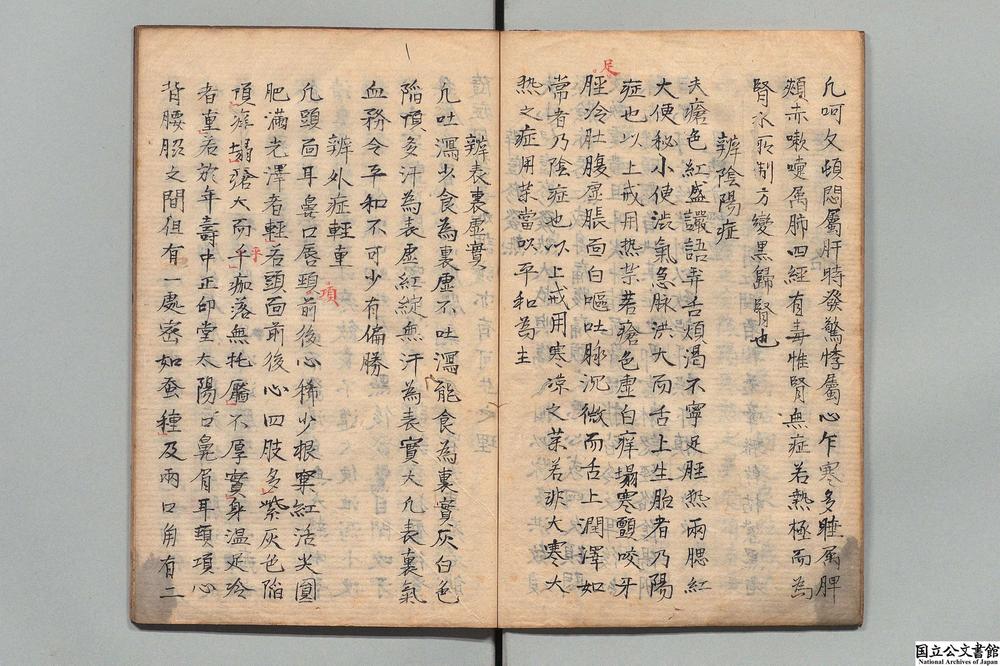 凡呵欠頓悶屬肝時發驚悸屬心乍寒多睡屬脾
頰赤嗽嚏屬肺四經有毒惟腎無症若熱極而為
腎水所制方變黑歸腎也
辨陰陽症
夫瘡色紅盛譫語弄舌煩渴不寧足脛熱兩腮紅
大便秘小便澁氣急脉洪大而舌上生胎者乃陽
症也以上戒用熱藥若瘡色虛白痒塌寒顫咬牙
足
脛冷肚腹虛脹面白嘔吐脉沉微而舌上潤澤如
常者乃陰症也以上戒用寒凉之藥若非大寒大
熱之症用藥當以平和為主
辨表裏虛實
凡吐瀉少食為裏虛不吐瀉能食為裏實灰白色
陷頂多汗為表虛紅綻無汗為表實大凡表裏氣
血務令平和不可少有偏勝
辨外症輕重
凡頭面耳鼻口唇頸前後心稀少根窠紅活尖圓
項
肥滿光澤者輕若頭面前後心四肢多紫灰色陷
頂痒塌發大而千痂落無托靨不厚實身溫足冷
平
者重若於年壽中正印堂太陽口鼻眉耳頸項心
背腰腹之間但有一處密如蚕種及兩口角有二
国立公文書館
National Archives of Japan